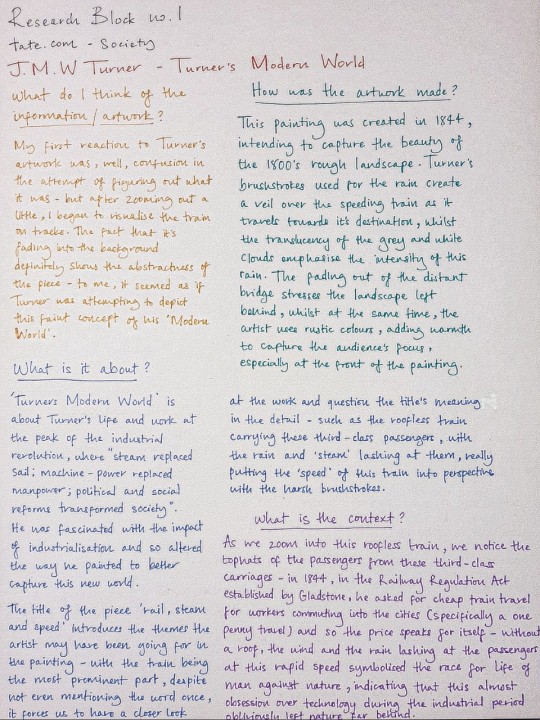 Research Block no. 1
tate.com - Society
J.M.W Turner - Turner's Modern World
What do I think of the
information / artwork ?
My first reaction to Turner's
artwork was, well, confusion in
the attempt of figuring out what
it was - but after zooming out a
little, I began to visualise the train
on tracks. The fact that it's
fading into the background
definitely shows the abstractness of
the piece - to me, it seemed as if
Turner was attempting to depict
this faint concept of his 'Modern
World'.
How was the artwork made ?
This painting was created in 1844,
intending to capture the beauty of
the 1800's rough landscape. Turner's
brushstrokes used for the rain create
a veil over the speeding train as it
travels towards it's destination, whilst
the translucency of the grey and white
clouds emphasise the intensity of this
rain. The fading out of the distant
bridge stresses the landscape left
behind, whilst at the same time, the
artist uses rustic colours, adding warmth
to capture the audience's focus,
especially at the front of the painting.
What is it about ?
'Turners Modern World' is
about Turner's life and work at
the peak of the industrial
revolution, where "steam replaced
sail; machine-power replaced
manpower; political and social
reforms transformed society".
He was fascinated with the impact
of industrialisation and so altered
the way he painted to better
capture this new world.
The title of the piece 'rail, steam
and speed' introduces the themes the
artist may have been going for in
the painting - with the train being
the most prominent part, despite
not even mentioning the word once,
it forces us to have a closer look
at the work and question the title's meaning
in the detail - such as the roofless train
carrying these third-class passengers, with
the rain and 'steam' lashing at them, really
putting the 'speed' of this train into perspective
with the harsh brushstrokes.
What is the context ?
As we zoom into this roofless train, we notice the
tophats of the passengers from these third-class
carriages - in 1844, in the Railway Regulation Act
established by Gladstone, he asked for cheap train travel
for workers commuting into the cities (specifically a one
penny travel) and so the price speaks for itself - without
a roof, the wind and the rain lashing at the passengers
at this rapid speed symbolised the race for life of
man against nature, indicating that this almost
obsession over technology during the industrial period
obliviously left nature far behind.